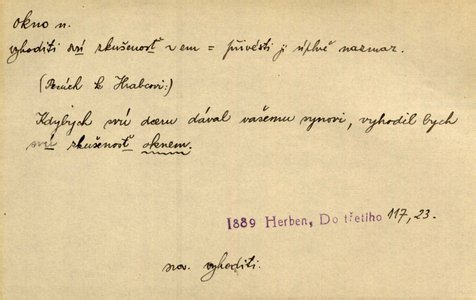 okno n.
vyhoditi svú zkušenosť z em = přivésti ji úplně nazmar.
(Penách k Hrabcovi:)
Kdybych svú dceru dával vašemu synovi, vyhodil bych
svú zkušenosť oknem.
1889 Herben, Do třetího 117, 23.
srov. vyhoditi.